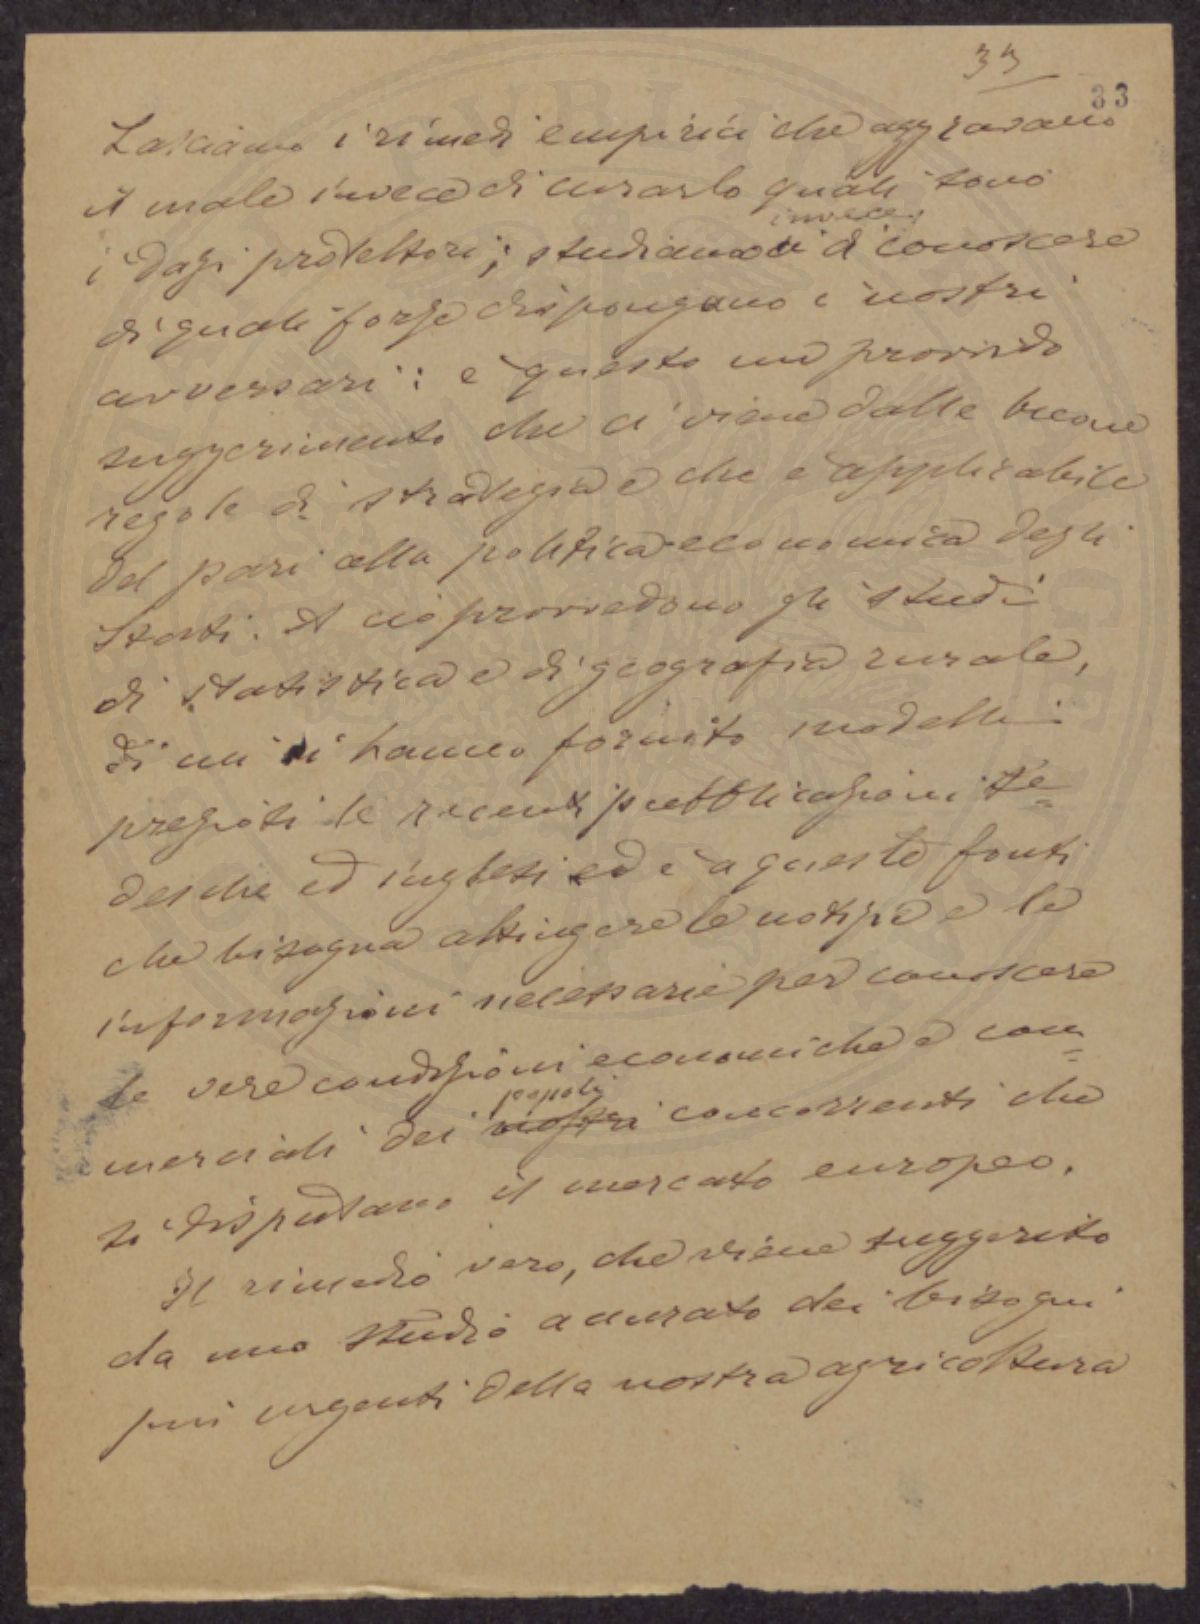 33
33
Lasciamo i rimedi empirici che aggravano
il male invece di curarlo quali sono
invece
i dazi protettori; studiamoci di conoscere
di quali forze dispongano i nostri
avversari: è questo un provvido
suggerimento che ci viene dalle buone
regole di strategia e che è applicabile
del pari alla politica economica degli
Stati. A ciò provvedono gli studi
di statistica e di geografia rurale,
di cui ci hanno fornito modelli
pregiati le recenti pubblicazioni te=
desche ed inglesi ed è a queste fonti
che bisogna attingere le notizie e le
informazioni necessarie per conoscere
le vere condizioni economiche e com=
popoli
merciali dei nostri concorrenti che
si disputano il mercato europeo.
Il rimedio vero, che viene suggerito
da uno studio accurato dei bisogni
più urgenti della nostra agricoltura